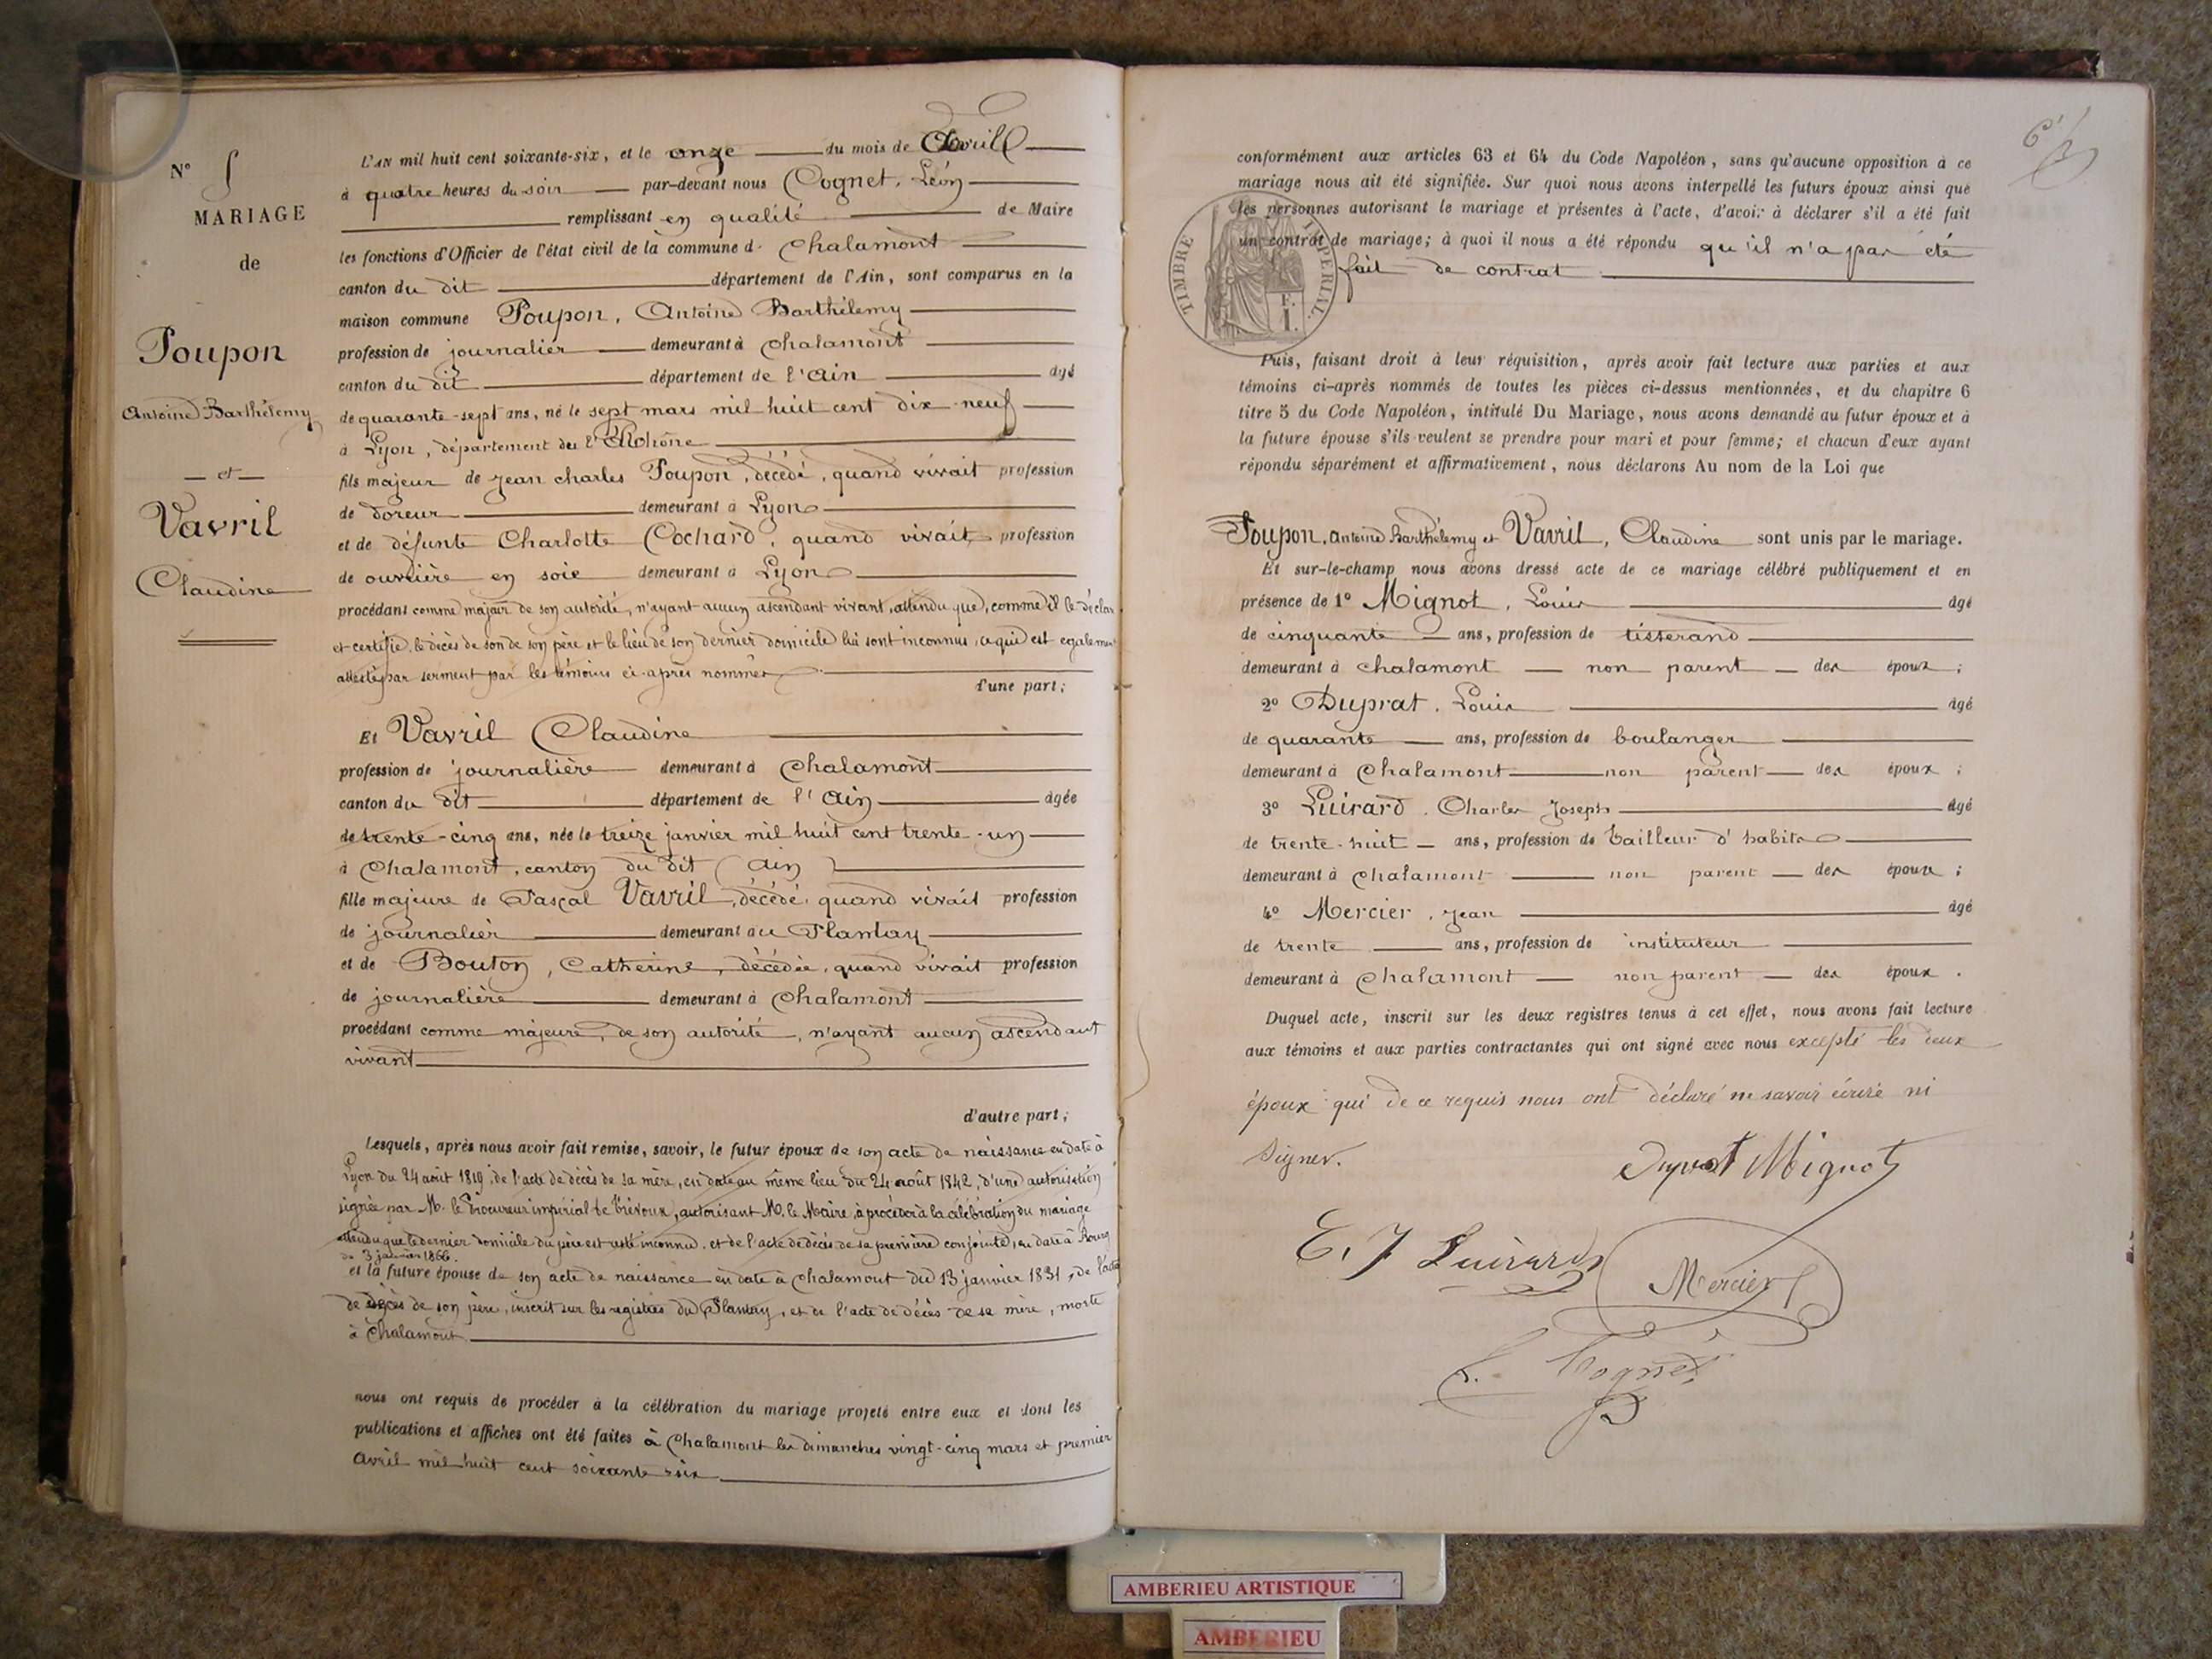 N° 5
MARIAGE
de
Poupon
Antoine Barthélemy
— et —
Vavril
Claudine
L'AN mil huit cent soixante-six, et le onze du mois de Avril
à quatre heures du soir par-devant nous Cognet, Léon
remplissant en qualité de Maire
les fonctions d'Officier de l'état civil de la commune d. Chalamont
canton du dit département de l'Ain, sont comparus en la
maison commune Poupon, Antoine Barthélemy
profession de journalier demeurant à Chalamont
canton du dit département de l'Ain âgé
de quarante-sept ans, né le sept mars mil huit cent dix-neuf
à Lyon, département du Rhône
fils majeur de Jean Charles Poupon, décédé, quand vivait profession
de doreur demeurant à Lyon
et de défunte Charlotte Cochard, quand vivait profession
de ouvrière en soie demeurant à Lyon
procédant comme majeur de son autorité, n'ayant aucun ascendant vivant, attendu que, comme il le déclare
et certifie, le décès de son de son père et le lieu de son dernier domicile lui sont inconnus, ce qui est également
attesté par serment par les témoins ci-après nommés
d'une part;
Et Vavril Claudine
profession de journalière demeurant à Chalamont
canton du dit département de l'Ain âgée
de trente-cinq ans, née le treize janvier mil huit cent trente-un
à Chalamont, canton du dit (Ain)
fille majeure de Pascal Vavril, décédé, quand vivait profession
de journalier demeurant au Plantay
et de Bouton, Catherine, décédée, quand vivait profession
de journalière demeurant à Chalamont
procédant comme majeure, de son autorité, n'ayant aucun ascendant
vivant
d'autre part;
Lesquels, après nous avoir fait remise, savoir, le futur époux de son acte de naissance en date à
Lyon du 24 août 1819, de l'acte de décès de sa mère, en date au même lieu du 24 août 1842, d'une autorisation
signée par M. le Procureur impérial de Trévoux, autorisant M. le Maire, à procéder à la célébration du mariage
attendu que le dernier domicile du père est resté inconnu, et de l'acte de décès de sa première conjointe, en date à Bourg
du 3 janvier 1866
et la future épouse de son acte de naissance en date à Chalamont du 13 janvier 1831, de l'acte
de décès de son père, inscrit sur les registres du Plantay, et de l'acte de décès de sa mère, morte
à Chalamont
nous ont requis de procéder à la célébration du mariage projeté entre eux et dont les
publications et affiches ont été faites à Chalamont les dimanches vingt-cinq mars et premier
avril mil huit cent soixante-six
conformément aux articles 63 et 64 du Code Napoléon, sans qu'aucune opposition à ce
mariage nous ait été signifiée. Sur quoi nous avons interpellé les futurs époux ainsi que
les personnes autorisant le mariage et présentes à l'acte, d'avoir à déclarer s'il a été fait
un contrat de mariage; à quoi il nous a été répondu qu'il n'a pas été
fait de contrat
TIMBRE IMPERIAL
F.
1.
Puis, faisant droit à leur réquisition, après avoir fait lecture aux parties et aux
témoins ci-après nommés de toutes les pièces ci-dessus mentionnées, et du chapitre 6
titre 5 du Code Napoléon, intitulé Du Mariage, nous avons demandé au futur époux et à
la future épouse s'ils veulent se prendre pour mari et pour femme; et chacun d'eux ayant
répondu séparément et affirmativement, nous déclarons Au nom de la Loi que
Poupon, Antoine Barthélemy et Vavril, Claudine sont unis par le mariage.
Et sur-le-champ nous avons dressé acte de ce mariage célébré publiquement et en
présence de 1° Mignot, Louis âgé
de cinquante ans, profession de tisserand
demeurant à Chalamont non parent des époux;
2° Duprat, Louis âgé
de quarante ans, profession de boulanger
demeurant à Chalamont non parent des époux;
3° Luirard, Charles Joseph âgé
de trente-huit ans, profession de tailleur d'habits
demeurant à Chalamont non parent des époux;
4° Mercier, Jean âgé
de trente ans, profession de instituteur
demeurant à Chalamont non parent des époux.
Duquel acte, inscrit sur les deux registres tenus à cet effet, nous avons fait lecture
aux témoins et aux parties contractantes qui ont signé avec nous excepté les deux
époux qui de ce requis nous ont déclaré ne savoir écrire ni
signer.
Duprat Mignot
C. J Luirard
Mercier
L. Cognet
AMBERIEU ARTISTIQUE
AMBERIEU